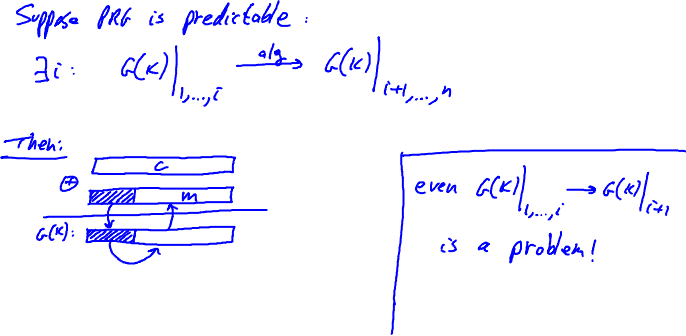 Suppose PRG is predictable:
∃i: G(K)|1,...,i alg→ G(K)|i+1,...,n
Then:
c
⊕
m
G(K):
even G(K)|1,...,i → G(K)|i+1
is a problem!